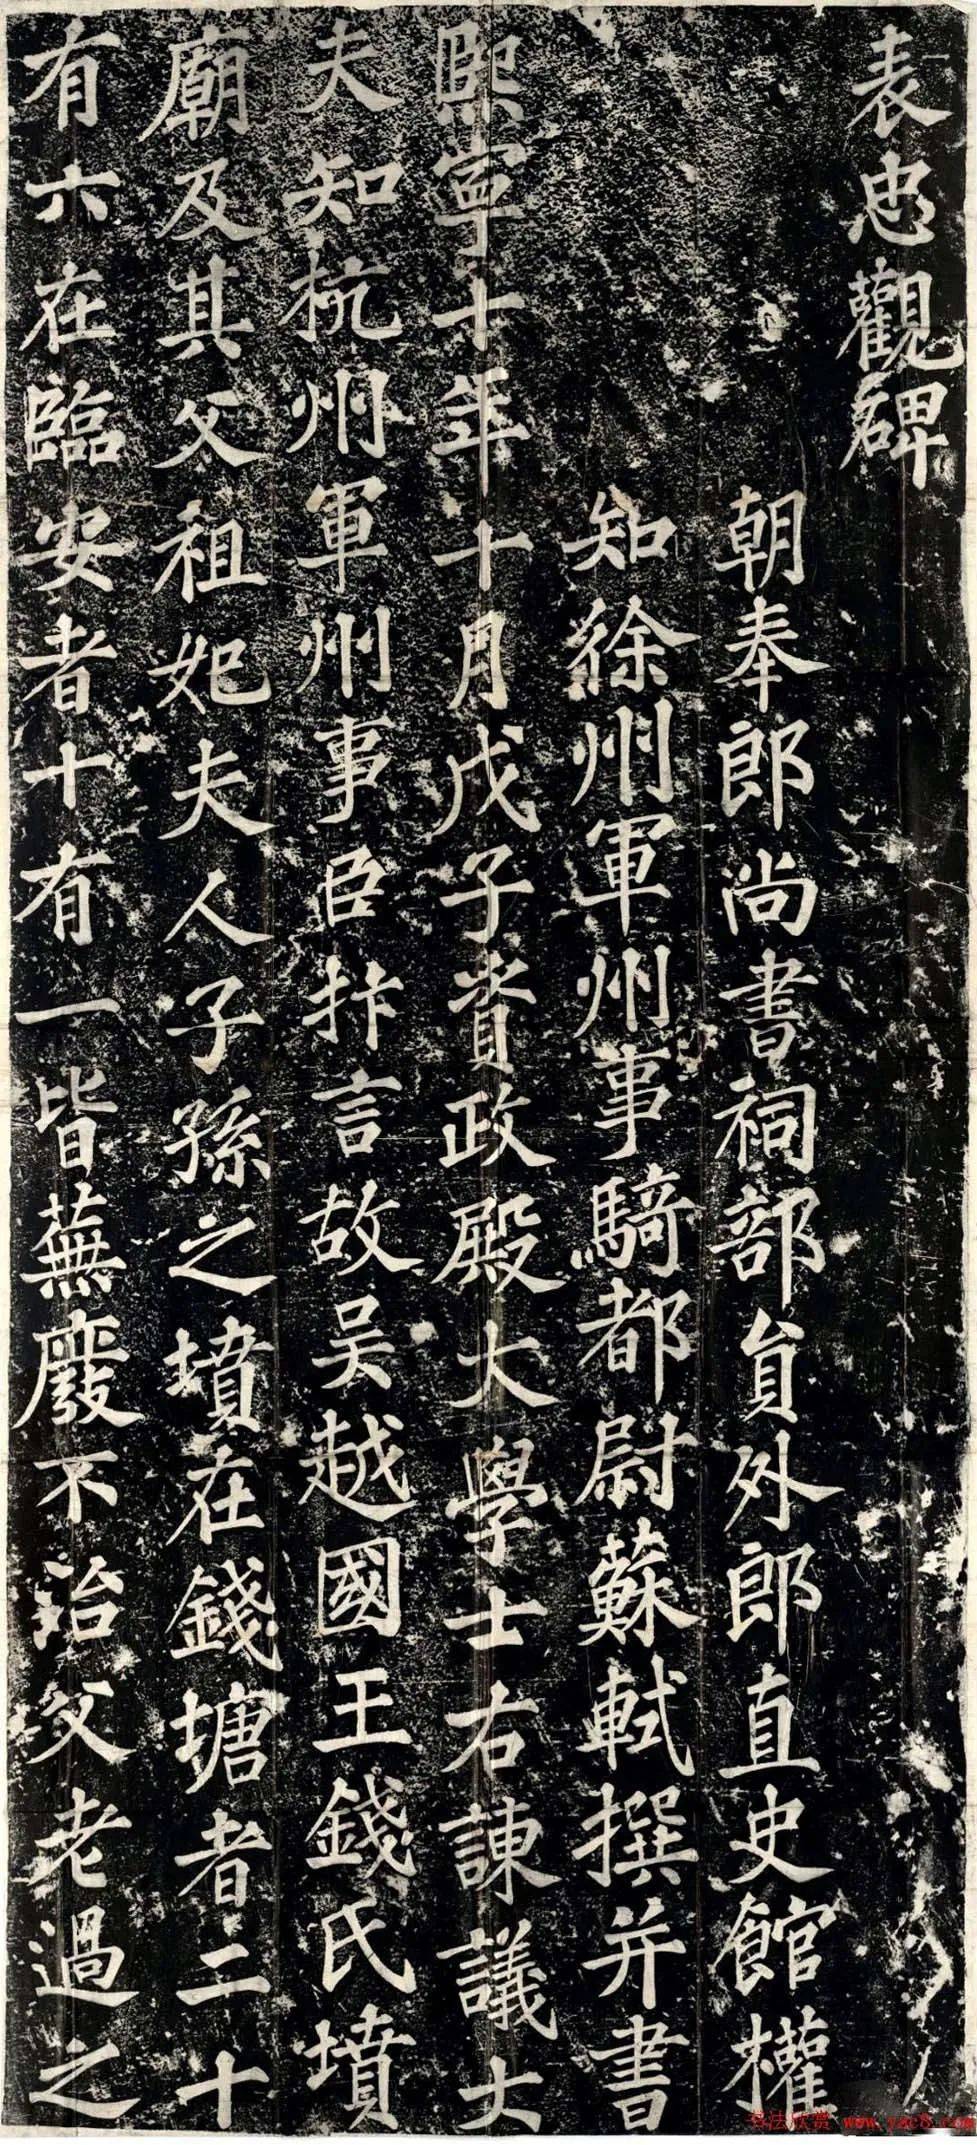 表忠觀碑
朝奉郎尚書祠部員外郎直史館權
知徐州軍州事騎都尉蘇軾撰并書
熙寧十年十月戊子資政殿大學士右諫議大
夫知杭州軍州事臣抃言故吴越國王錢氏墳
廟及其父祖妃夫人子孫之墳在錢塘者二十
有六在臨安者十有一皆蕪廢不治父老過之
书法欣赏 www.yac8.com